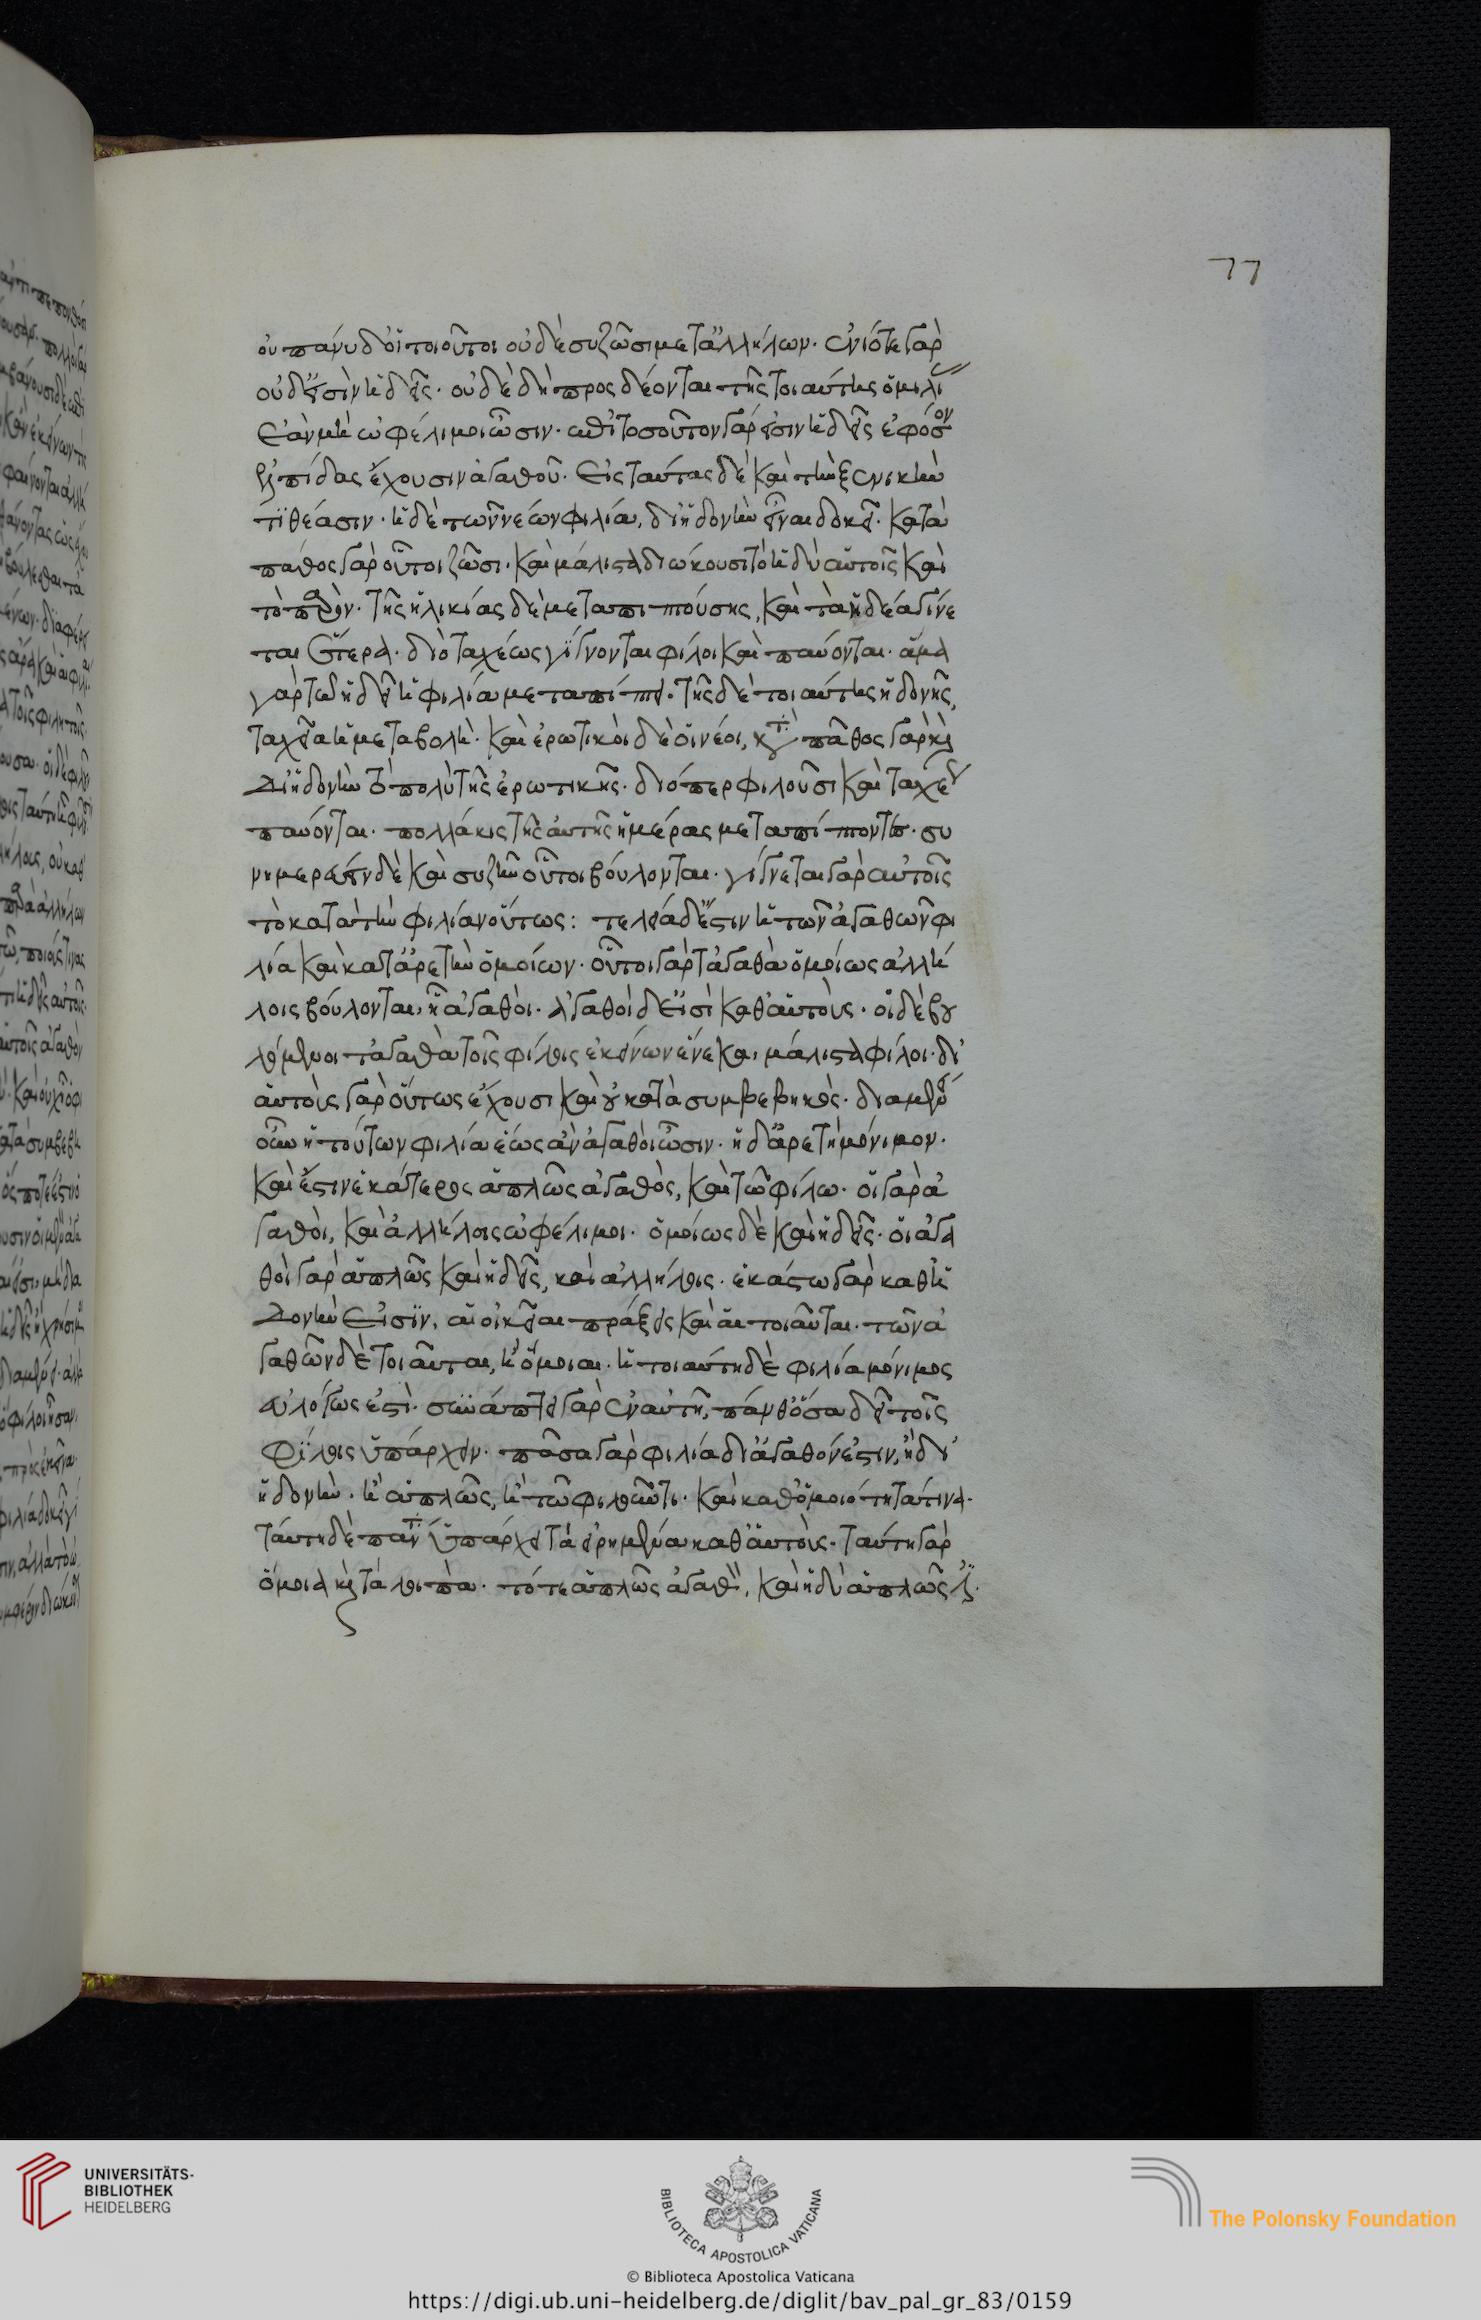 οὐ πάνυ δ' οἱ τοιοῦτοι οὐδὲ συζῶσι μετ' ἀλλήλων. ἐνίοτε γὰρ
οὐδ' εἰσὶν ἡδεῖς. οὐδὲ δὴ προσδέονται τῆς τοιαύτης ὁμιλί
ἐὰν μὴ ὠφέλιμοι ὦσιν. ἐπὶ τοσοῦτον γάρ εἰσιν ἡδεῖς ἐφ' ὅσον
ἐλπίδας ἔχουσιν ἀγαθοῦ. εἰς ταύτας δὲ καὶ τὴν ξενικὴν
τιθέασιν. ἡ δὲ τῶν νέων φιλία, δι' ἡδονὴν εἶναι δοκεῖ. κατὰ
πάθος γὰρ οὗτοι ζῶσι. καὶ μάλιστα διώκουσι τὸ ἡδὺ αὑτοῖς καὶ
τὸ παρόν. τῆς ἡλικίας δὲ μεταπιπτούσης, καὶ τὰ ἡδέα γίνε
ται ἕτερα. διὸ ταχέως γίγνονται φίλοι καὶ παύονται. ἅμα
γὰρ τῷ ἡδεῖ ἡ φιλία μεταπίπτει. τῆς δὲ τοιαύτης ἡδονῆς,
ταχεῖα ἡ μεταβολή. καὶ ἐρωτικοὶ δὲ οἱ νέοι, κατὰ πάθος γὰρ καὶ
δι' ἡδονὴν τὸ πολὺ τῆς ἐρωτικῆς. διόπερ φιλοῦσι καὶ ταχέως
παύονται. πολλάκις τῆς αὐτῆς ἡμέρας μεταπίπτοντες. συ
νημερεύειν δὲ καὶ συζῆν οὗτοι βούλονται. γίγνεται γὰρ αὐτοῖς
τὸ κατὰ τὴν φιλίαν οὕτως: τελεία δ' ἐστὶν ἡ τῶν ἀγαθῶν φι
λία καὶ κατ' ἀρετὴν ὁμοίων. οὗτοι γὰρ τἀγαθὰ ὁμοίως ἀλλή
λοις βούλονται, ᾗ ἀγαθοί. ἀγαθοὶ δ' εἰσὶ καθ' αὑτούς. οἱ δὲ βου
λόμενοι τἀγαθὰ τοῖς φίλοις ἐκείνων ἕνεκα, μάλιστα φίλοι. δι'
αὑτοὺς γὰρ οὕτως ἔχουσι καὶ οὐ κατὰ συμβεβηκός. διαμένει
οὖν ἡ τούτων φιλία ἕως ἂν ἀγαθοὶ ὦσιν. ἡ δ' ἀρετὴ μόνιμον.
καὶ ἔστιν ἑκάτερος ἁπλῶς ἀγαθός, καὶ τῷ φίλῳ. οἱ γὰρ ἀ
γαθοί, καὶ ἀλλήλοις ὠφέλιμοι. ὁμοίως δὲ καὶ ἡδεῖς. οἱ ἀγα
θοὶ γὰρ ἁπλῶς καὶ ἡδεῖς, καὶ ἀλλήλοις. ἑκάστῳ γὰρ καθ' ἡ
δονὴν εἰσίν, αἱ οἰκεῖαι πράξεις καὶ αἱ τοιαῦται. τῶν ἀ
γαθῶν δὲ τοιαῦται, ἢ ὅμοιαι. ἡ τοιαύτη δὲ φιλία μόνιμος
εὐλόγως ἐστί. συνάπτει γὰρ ἐν αὐτῇ, πάνθ' ὅσα δεῖ τοῖς
φίλοις ὑπάρχειν. πᾶσα γὰρ φιλία δι' ἀγαθόν ἐστιν, ἢ δι'
ἡδονήν. ἢ ἁπλῶς, ἢ τῷ φιλοῦντι. καὶ καθ' ὁμοιότητά τινα.
ταύτῃ δὲ πάντα ὑπάρχει τὰ εἰρημένα καθ' αὑτούς. ταύτῃ γὰρ
ὅμοια καὶ τὰ λοιπά. τό τε ἁπλῶς ἀγαθόν, καὶ ἡδὺ ἁπλῶς ἐστι.
77
UNIVERSITÄTS-
BIBLIOTHEK
HEIDELBERG
BIBLIOTECA APOSTOLICA VATICANA
© Biblioteca Apostolica Vaticana
The Polonsky Foundation
https://digi.ub.uni-heidelberg.de/diglit/bav_pal_gr_83/0159